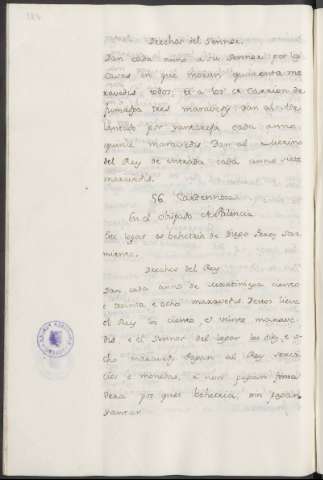 Derechos del Sennor.
Dan cada anno a su Sennor por las
Casas en que moran quarenta ma
ravedis todos; e a los de Carrion de
tres maravedis dan al
lantado por yantareja cada anno
quinse maravedis Dan al Merino
del Rey de entrada cada anno siete
maravedis.
56 Cardennosa
En el Obispado de Palencia
Este logar es behetria de Diego Perez Sar
miento.
Derechos del Rey
Dan cada anno de martiniega ciento
e treinta e ocho maravedis Destos lieva
el Rey los ciento e veinte marave
dis e el Sennor del logar los dies e o
cho maravedis pagan al Rey servi
cios e monedas, e non pagan fonsa
dera por que es behetria, nin pagan
yantar